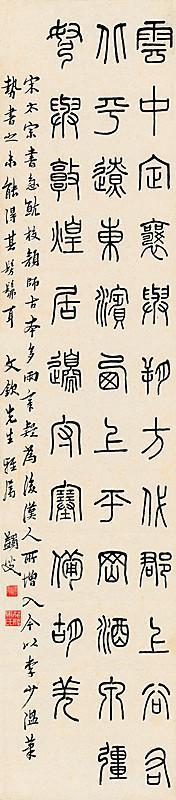 雲中定襄與朔方代郡上谷右
北平遼東濱西上平岡酒泉彊
弩與敦煌居邊守塞備胡羌
宋太宗書急就校顏師古本多兩章疑為後漢人所增入今以李少溫筆
勢書之未能得其髣髴耳 文欽先生雅屬 蠲叟